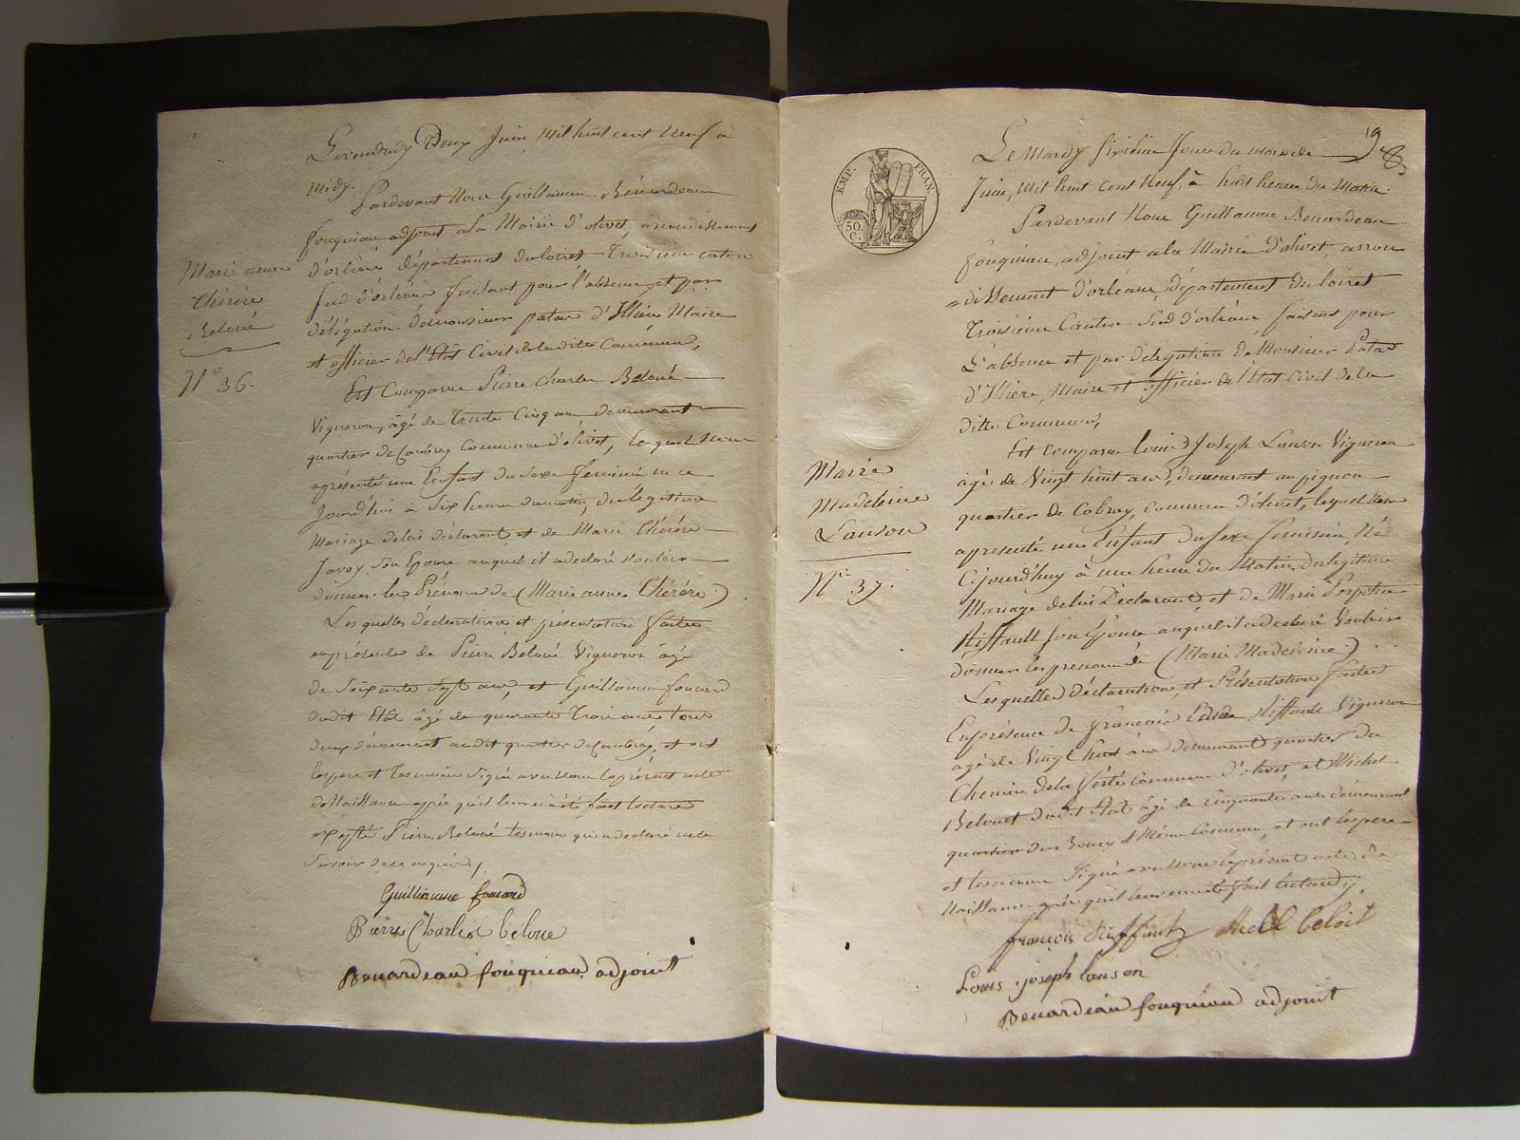 Le vendredy Deux Juin mil huit cent neuf à
midy.
Pardevant Nous Guillaume Benardeau
fouquiau adjoint a la Mairie d'olivet, arrondissement
d'orléans département du loiret, Troisieme canton
Sud d'orléans faisant pour l'absence et par
délégation de monsieur patas d'Illiers Maire
et officier de l'Etat Civil de la ditte Commune,
Est Comparu Pierre Charles Beloué
Vigneron, âgé de Trente Cinq ans demeurant
quartier de Coubray Commune d'olivet, lequel Nous
a présenté une Enfant du sexe féminin né ce
Jourd'hui à six heures du matin, du légitime
Mariage de lui déclarant et de Marie Thérèse
Javoy Son Epouse auquel il a déclaré vouloir
donner les Prénoms de (Marie anne Thérèse)
Les quelles déclaration et présentation faites
en présence de Pierre Beloué Vigneron âgé
de soixante sept ans, et Guillaume fouard
dudit état âgé de quarante Trois ans tous
deux demeurant au dit quartier de Coubray, et ont
le pere et témoin Signé avec nous le présent acte
de Naissance après qu'il leur en a été fait lecture
excepté Pierre Beloué témoin qui a déclaré ne le
savoir de ce enquis
Guilliaume fouard
Pierre Charles beloue
Benardeau fouquiau adjoint
Marie anne
Thérèse
Beloué
N° 36.
19
EMP. FRAN.
50.
C.
Le Mardy Sixième Jour du mois de
Juin, mil huit cent neuf, à huit heures du Matin.
Pardevant Nous Guillaume Benardeau
fouquiau, adjoint a la Mairie D'olivet, arron
dissement d'orléans, département du loiret
Troisième Canton Sud d'orléans faisant pour
L'absence et par délégation de Monsieur Patas
d'Illiers, Maire et officier de l'Etat Civil de la
ditte Commune,
Est comparu Louis Joseph Lanson Vigneron
âgé de Vingt huit ans, demeurant au pignon
quartier de Cobray, commune d'olivet, lequel Nous
a présenté une Enfant du sexe féminin, Né
Cejourd'huy à une heure du Matin, du légitime
Mariage de lui Déclarant, et de Marie
Riffault son Epouse auquel il a déclaré Vouloir
donner les prenoms de (Marie Madeleine)
Lesquelles Déclaration et Présentation faites
En présence de françois Riffault Vigneron
agé de Vingt huit ans demeurant quartier du
Chemin de la ferté Commune d'olivet, et Michel
Belouet dudit Etat âgé de cinquante ans demeurant
quartier Même Commune, et ont le pere
et témoins Signé avec nous le présent acte de
Naissance après qu'il leur en a été fait lecture.
françois Riffault Michel beloit
Louis joseph lanson
Benardeau fouquiau adjoint
Marie
Madeleine
Lanson
N° 37.